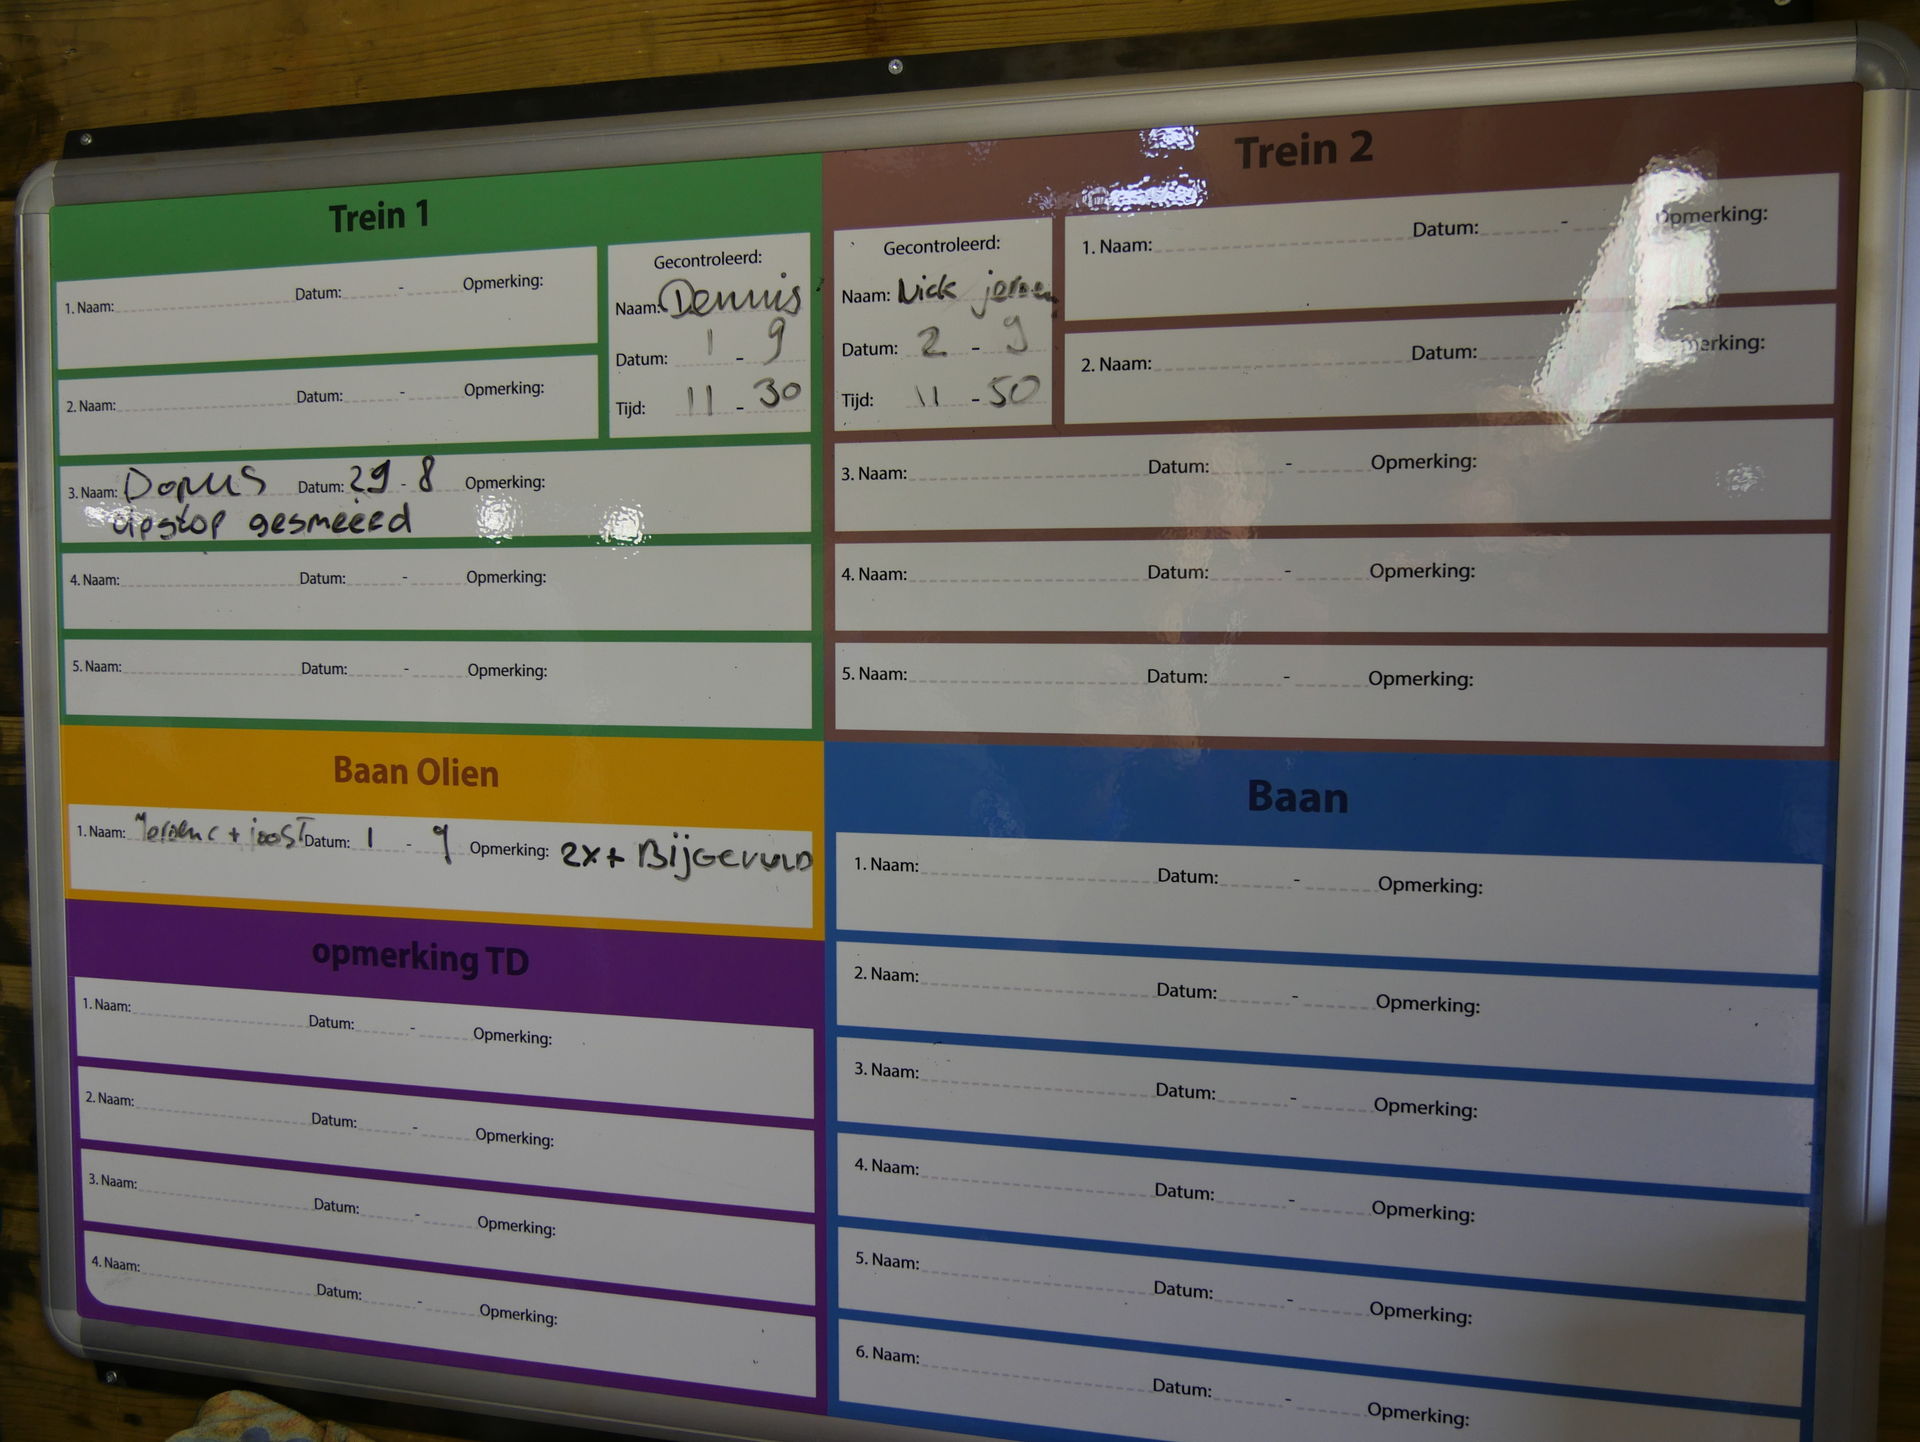 Trein 1
1. Naam: Datum: - Opmerking:
2. Naam: Datum: - Opmerking:
Gecontroleerd:
Naam: Dennis
Datum: 1 - 9
Tijd: 11 - 30
3. Naam: Datum: 29 - 8 Opmerking:
gesmeerd
4. Naam: Datum: - Opmerking:
5. Naam: Datum: - Opmerking:
Trein 2
Gecontroleerd:
Naam: Nick jeroen
Datum: 2 - 9
Tijd: 11 - 50
1. Naam: Datum: - Opmerking:
2. Naam: Datum: Opmerking:
3. Naam: Datum: - Opmerking:
4. Naam: Datum: - Opmerking:
5. Naam: Datum: - Opmerking:
Baan Olien
1. Naam: Jeroen c + joost Datum: 1 - 9 Opmerking: 2x + Bijgevuld
opmerking TD
1. Naam: Datum: - Opmerking:
2. Naam: Datum: - Opmerking:
3. Naam: Datum: - Opmerking:
4. Naam: Datum: - Opmerking:
Baan
1. Naam: Datum: - Opmerking:
2. Naam: Datum: - Opmerking:
3. Naam: Datum: - Opmerking:
4. Naam: Datum: - Opmerking:
5. Naam: Datum: - Opmerking:
6. Naam: Datum: - Opmerking: